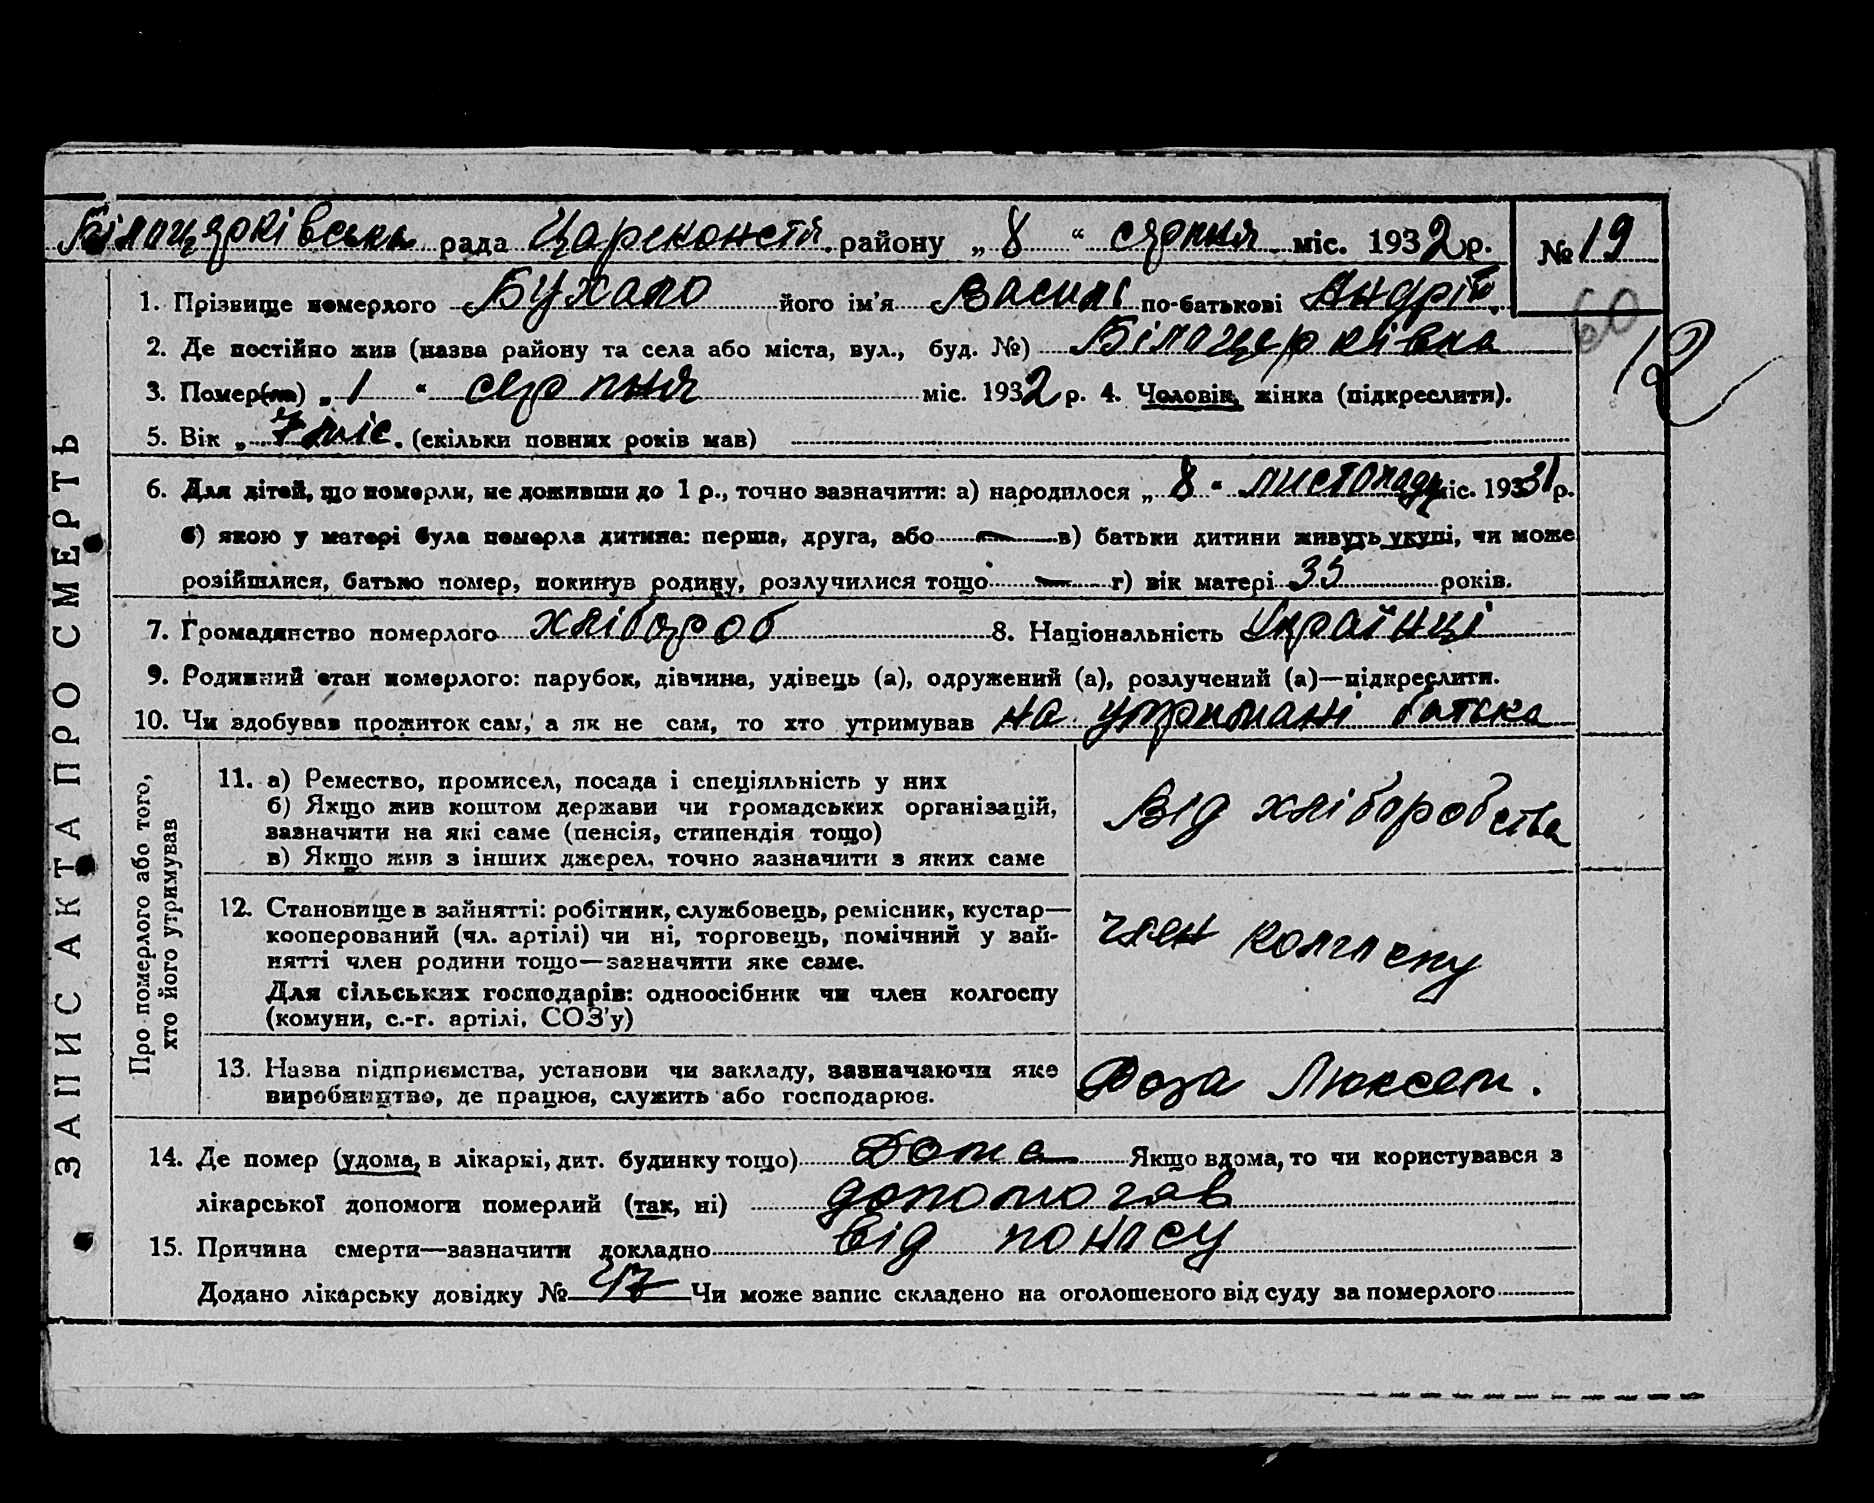 Білоцерківська рада Цареконстя. району „ 8 “ серпня міс. 1932 р. № 19
1. Прізвище померлого Бухало його ім'я Василь по-батькові Андрій.
60
2. Де постійно жив (назва району та села або міста, вул., буд. №) Білоцерківка
12
3. Помер(ла) „ 1 “ серпня міс. 1932 р. 4. Чоловік, жінка (підкреслити).
5. Вік „ 7 міс. (скільки повних років мав)
6. Для дітей, що померли, не доживши до 1 р., точно зазначити: а) народилося „ 8 “ листопаду міс. 1931 р.
б) якою у матері була померла дитина: перша, друга, або — в) батьки дитини живуть укупі, чи може
розійшлися, батько помер, покинув родину, розлучилися тощо — г) вік матері 35 років.
7. Громадянство померлого хлібороб 8. Національність Українці
9. Родинний стан померлого: парубок, дівчина, удівець (а), одружений (а), розлучений (а)—підкреслити.
10. Чи здобував прожиток сам, а як не сам, то хто утримував на утримані батька
ЗАПИС АКТА ПРО СМЕРТЬ
Про померлого або того,
хто його утримував
11. а) Ремество, промисел, посада і спеціяльність у них
б) Якщо жив коштом держави чи громадських організацій,
зазначити на які саме (пенсія, стипендія тощо)
в) Якщо жив з інших джерел, точно зазначити з яких саме
Від хліборобства
12. Становище в зайнятті: робітник, службовець, ремісник, кустар—
кооперований (чл. артілі) чи ні, торговець, помічний у зай-
нятті член родини тощо—зазначити яке саме.
Для сільських господарів: одноосібник чи член колгоспу
(комуни, с.-г. артілі, СОЗ'у)
член колгоспу
13. Назва підприємства, установи чи закладу, зазначаючи яке
виробництво, де працює, служить або господарює.
Роза Люксем.
14. Де помер (удома, в лікарні, дит. будинку тощо) Дома Якщо вдома, то чи користувався з
лікарської допомоги померлий (так, ні) допомогав
15. Причина смерти—зазначити докладно від поносу
Додано лікарську довідку № 47 Чи може запис складено на оголошеного від суду за померлого